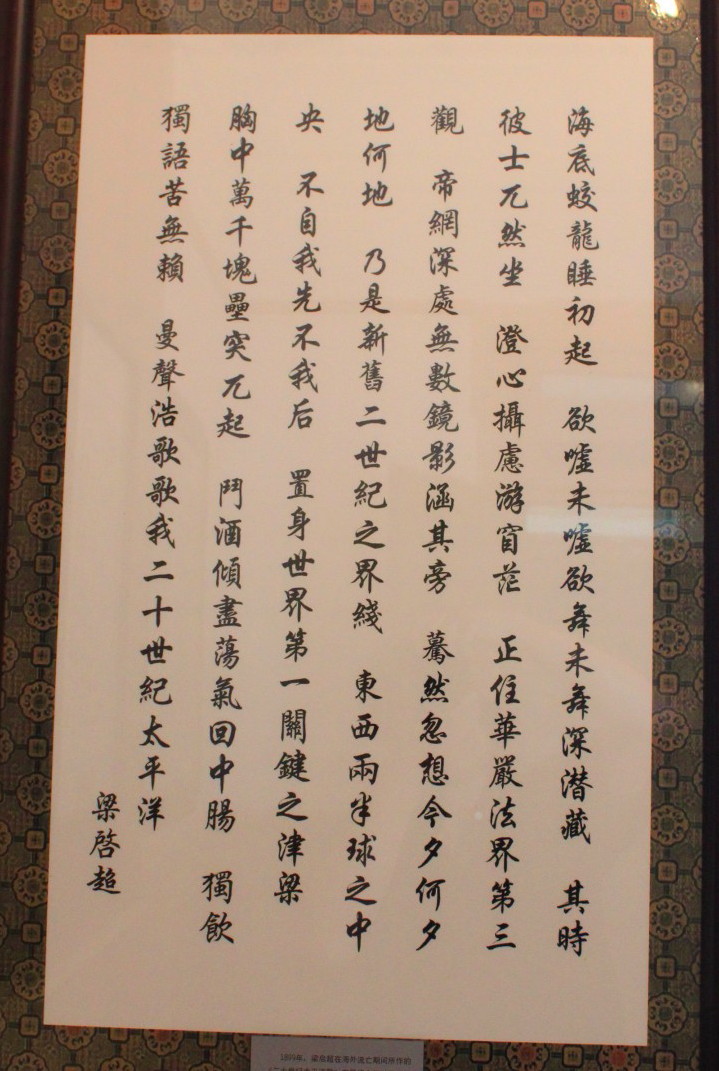 海底蛟龍睡初起　欲噓未噓欲舞未舞深潛藏　其時
彼士兀然坐　澄心攝慮游窅茫　正住華嚴法界第三
觀　帝網深處無數鏡影涵其旁　驀然忽想今夕何夕
地何地　乃是新舊二世紀之界綫　東西兩半球之中
央　不自我先不我后　置身世界第一關鍵之津梁
胸中萬千塊壘突兀起　鬥酒傾盡蕩氣回中腸　獨飲
獨語苦無賴　曼聲浩歌歌我二十世紀太平洋
梁啓超
1899年，梁启超在海外流亡期间所作的